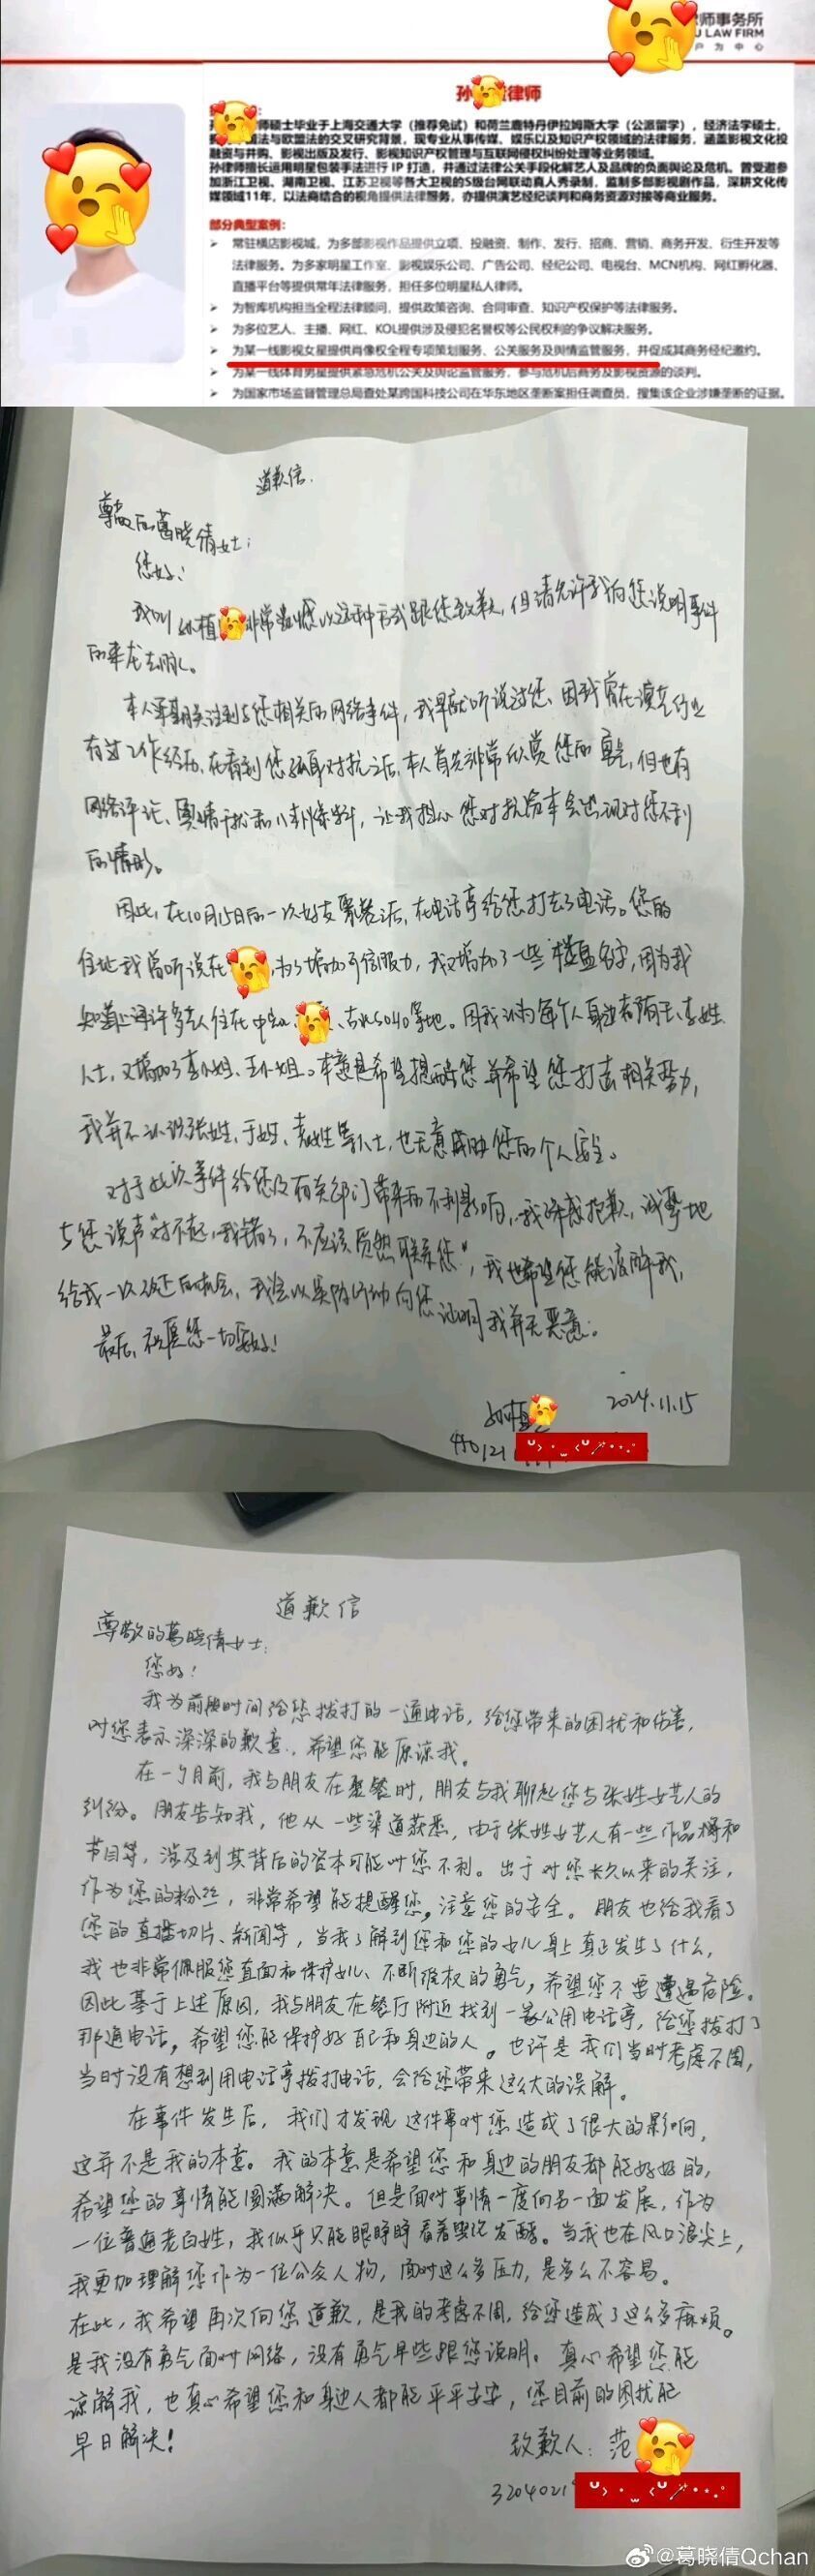 师事务所
U LAW FIRM
户 为 中 心
孙 律师
师硕士毕业于上海交通大学（推荐免试）和荷兰鹿特丹伊拉姆斯大学（公派留学），经济法学硕士，
法与欧盟法的交叉研究背景，现专业从事传媒、娱乐以及知识产权领域的法律服务，涵盖影视文化投
融资与并购、影视出版及发行、影视知识产权管理与互联网侵权纠纷处理等业务领域。
孙律师擅长运用明星包装手法进行 IP 打造，并通过法律公关手段化解艺人及品牌的负面舆论及危机。曾受邀参
加浙江卫视、湖南卫视、江苏卫视等各大卫视的S级台网联动真人秀录制，监制多部影视剧作品，深耕文化传
媒领域11年，以法商结合的视角提供法律服务，亦提供演艺经纪谈判和商务资源对接等商业服务。
部分典型案例：
➢ 常驻横店影视城，为多部影视作品提供立项、投融资、制作、发行、招商、营销、商务开发、衍生开发等
法律服务。为多家明星工作室、影视娱乐公司、广告公司、经纪公司、电视台、MCN机构、网红孵化器、
直播平台等提供常年法律服务，担任多位明星私人律师。
➢ 为智库机构担当全程法律顾问，提供政策咨询、合同审查、知识产权保护等法律服务。
➢ 为多位艺人、主播、网红、KOL提供涉及侵犯名誉权等公民权利的争议解决服务。
➢ 为某一线影视女星提供肖像权全程专项策划服务、公关服务及舆情监管服务，并促成其商务经纪邀约。
➢ 为某一线体育男星提供紧急危机公关及舆论监管服务，参与危机后商务及影视资源的谈判。
➢ 为国家市场监督管理总局查处某跨国科技公司在华东地区垄断案担任调查员，搜集该企业涉嫌垄断的证据。
道歉信.
尊敬的葛晓倩女士：
您好！
我叫孙植 非常抱憾以这种方式跟您致歉，但请允许我向您说明事件
的来龙去脉。
本人早期关注到与您相关的网络事件，我早就听说过您、因我曾在演艺行业
有过工作经历，在看到您孤身对抗之后，本人首先非常欣赏您的勇气，但也有
网络评论、舆情干扰和八卦爆料，让我担心您对抗资本会出现对您不利
的情形。
因此，在10月15日的一次好友聚餐后，在电话亭给您打去了电话。您的
住址我曾听说在 ，为了增加可信服力，我又增加了一些楼盘名字，因为我
知道上海许多艺人住在中 、古北SOHO等地。因我认为每个人身边都有王、李姓
人士，又增加了李小姐、王小姐。本意是希望提醒您并希望您打击相关势力，
我并不认识张姓、于姓、袁姓等人士，也无意威胁您的个人安全。
对于此次事件给您及有关部门带来的不利影响，我深感抱歉，诚挚地
与您说声“对不起，我错了，不应该贸然联系您”，我也希望您能谅解我，
给我一次改正的机会，我会以实际行动向您证明我并无恶意。
最后，祝愿您一切安好！
孙植
2024.11.15
道歉信
尊敬的葛晓倩女士：
您好！
我为前段时间给您拨打的一通电话，给您带来的困扰和伤害，
对您表示深深的歉意，希望您能原谅我。
在一个月前，我与朋友在聚餐时，朋友与我聊起您与张姓女艺人的
纠纷。朋友告知我，他从一些渠道获悉，由于张姓女艺人有一些作品将和
节目等，涉及到其背后的资本可能对您不利。出于对您长久以来的关注，
作为您的粉丝，非常希望能提醒您，注意您的安全。朋友也给我看了
您的直播切片、新闻等，当我了解到您和您的女儿身上真正发生了什么，
我也非常佩服您直面和保护女儿、不断维权的勇气，希望您不要遭遇危险。
因此基于上述原因，我与朋友在餐厅附近找到一家公用电话亭，给您拨打了
那通电话，希望您能保护好自己和身边的人。也许是我们当时考虑不周，
当时没有想到用电话亭拨打电话，会给您带来这么大的误解。
在事件发生后，我们才发现这件事对您造成了很大的影响，
这并不是我的本意。我的本意是希望您和身边的朋友都能好好的，
希望您的事情能圆满解决。但是面对事情一度向另一面发展，作为
一位普通老百姓，我似乎只能眼睁睁看着舆论发酵。当我也在风口浪尖上，
我更加理解您作为一位公众人物，面对这么多压力，是多么不容易。
在此，我希望再次向您道歉，是我的考虑不周，给您造成了这么多麻烦。
是我没有勇气面对网络，没有勇气早些跟您说明。真心希望您能
谅解我，也真心希望您和身边人都能平平安安，您目前的困扰能
早日解决！
致歉人：范
3204021
@葛晓倩Qchan